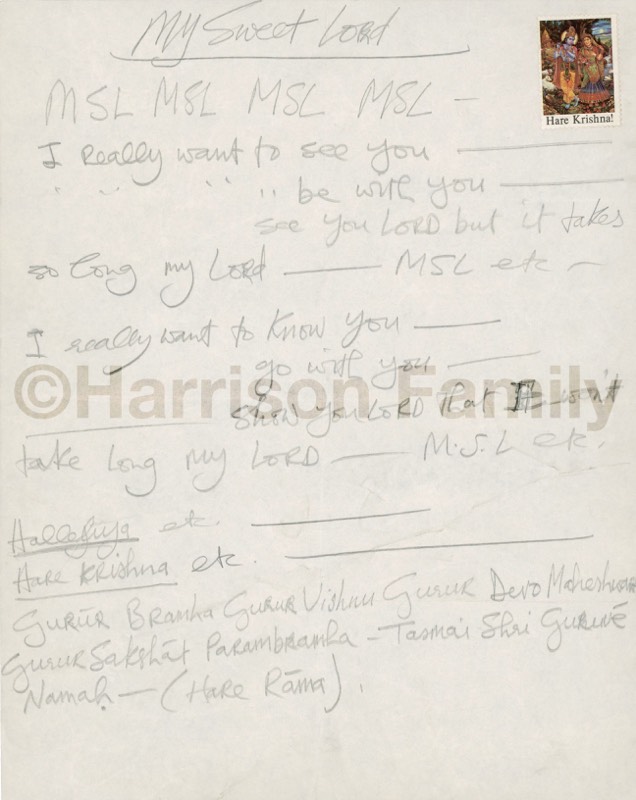 My Sweet Lord
Hare Krishna!
MSL MSL MSL MSL —
I really want to see you ———
" " " " be with you ———
see you LORD but it takes
so long my Lord ——— MSL etc —
I really want to know you ———
go with you ———
©Harrison Family
——— show you LORD that it won't
take long my LORD ——— M.S.L etc.
Hallelujа etc. ———
Hare Krishna etc. ———
GURŪR BRAMHA GURUR VISHNU GURUR DEVO MAHESHWAR
GURUR SAKSHĀT PARAMBRAMHA – TASMAI SHRI GURUVĒ
NAMAḤ — (HARE RĀMA).